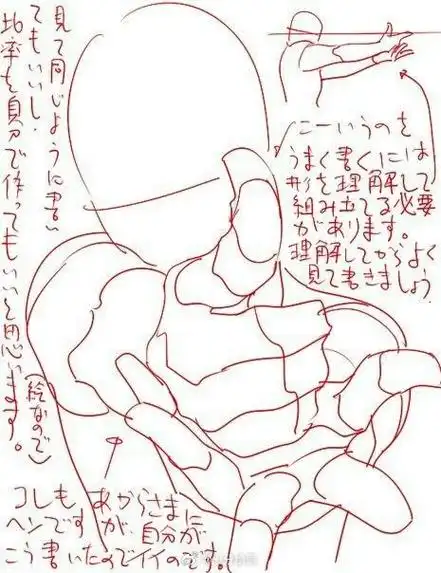 見て同じように書い
てもいいし、
比率を自分で作ってもいいと思います。
(絵なので)
こーいうのを
うまく書くには
形を理解して
組み立てる必要
があります。
理解してからよく
見て書きましょう
コレも あからさまに
ヘンですが、自分が
こう書いたのでイイのです。